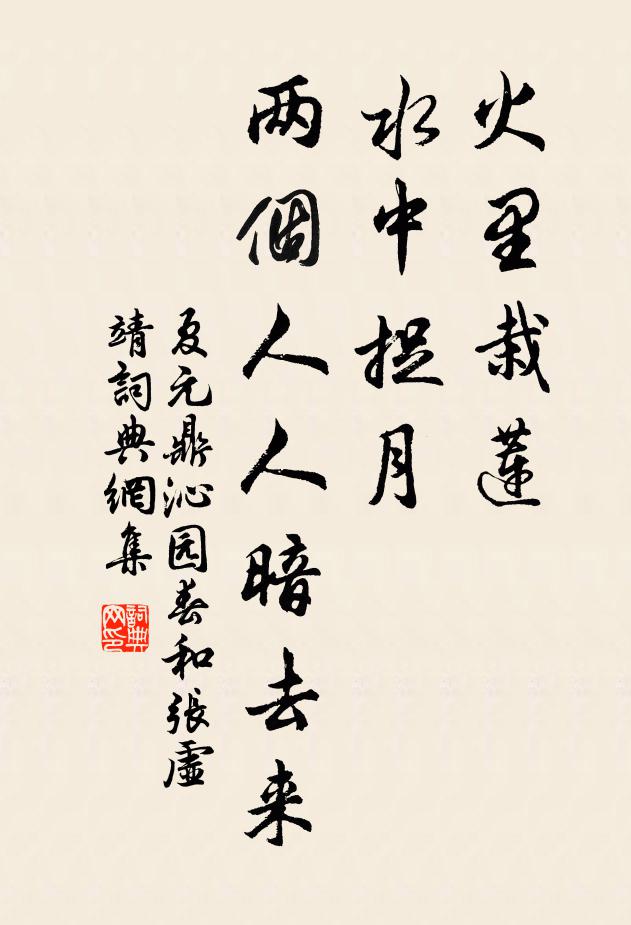 火里栽蓮
水中捉月
两個人人暗去来
夏元鼎沁园春和張虛
靖詞典網集
詞典
网印